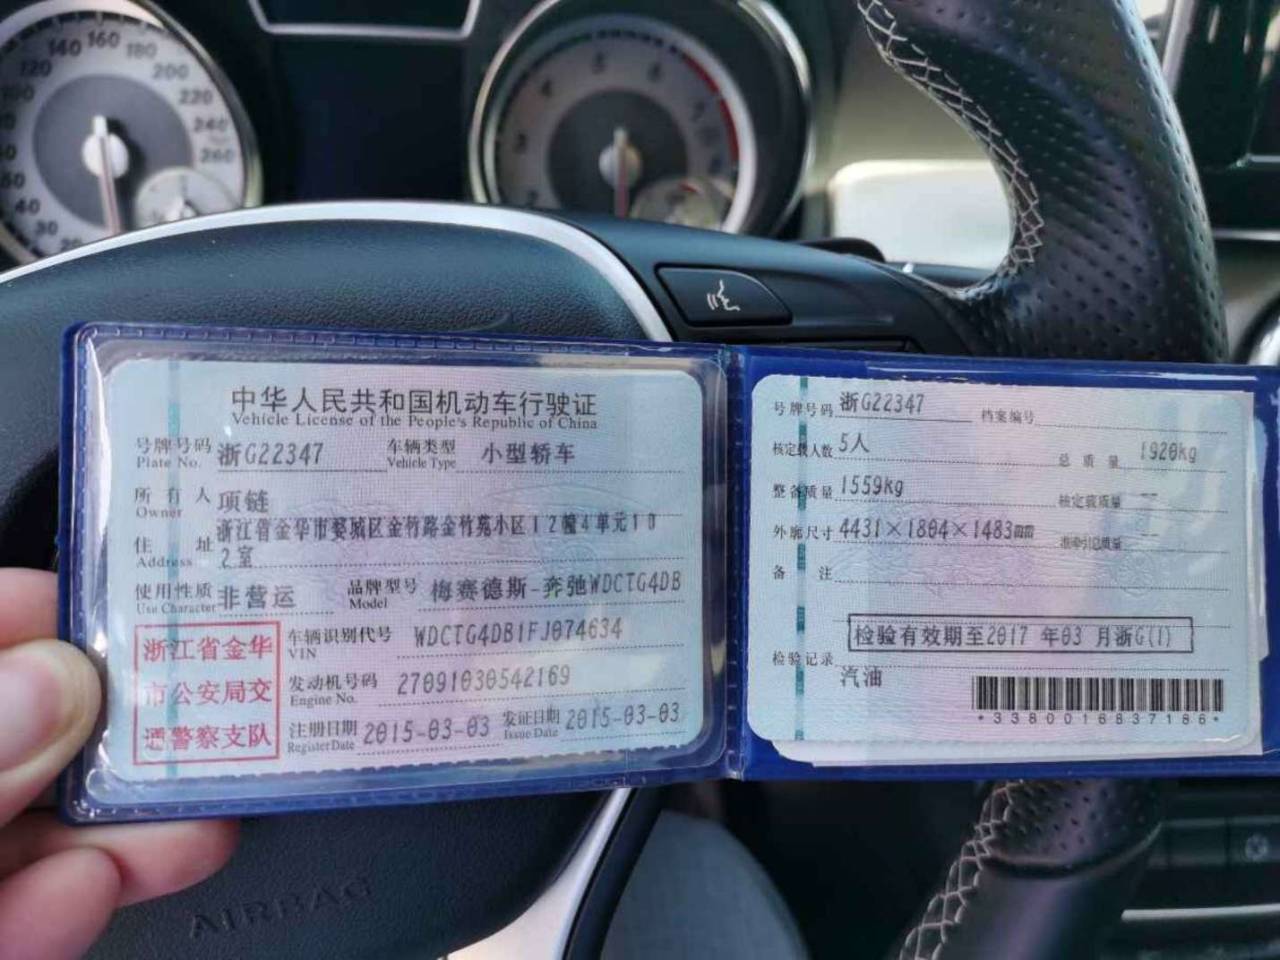 140 160 180
120 200
100 220
240
260
40
30
20
4 5 6
3 7
2 8
中华人民共和国机动车行驶证
Vehicle License of the People's Republic of China
号牌号码 浙G22347 车辆类型 小型轿车
Plate No. Vehicle Type
所有人 项链
Owner
住址 浙江省金华市婺城区金竹路金竹苑小区12幢4单元10
Address 2室
使用性质 非营运 品牌型号 梅赛德斯-奔驰WDCTG4DB
Use Character Model
浙江省金华
市公安局交
通警察支队
车辆识别代号 WDCTG4DB1FJ074634
VIN
发动机号码 27091030542169
Engine No.
注册日期 2015-03-03 发证日期 2015-03-03
Register Date Issue Date
号牌号码 浙G22347 档案编号
核定载人数 5人 总质量 1920kg
整备质量 1559kg 核定载质量 --
外廓尺寸 4431×1804×1483mm 准牵引总质量 --
备注
检验有效期至2017 年03 月浙G(1)
检验记录
汽油
*3380016837186*
AIRBAG